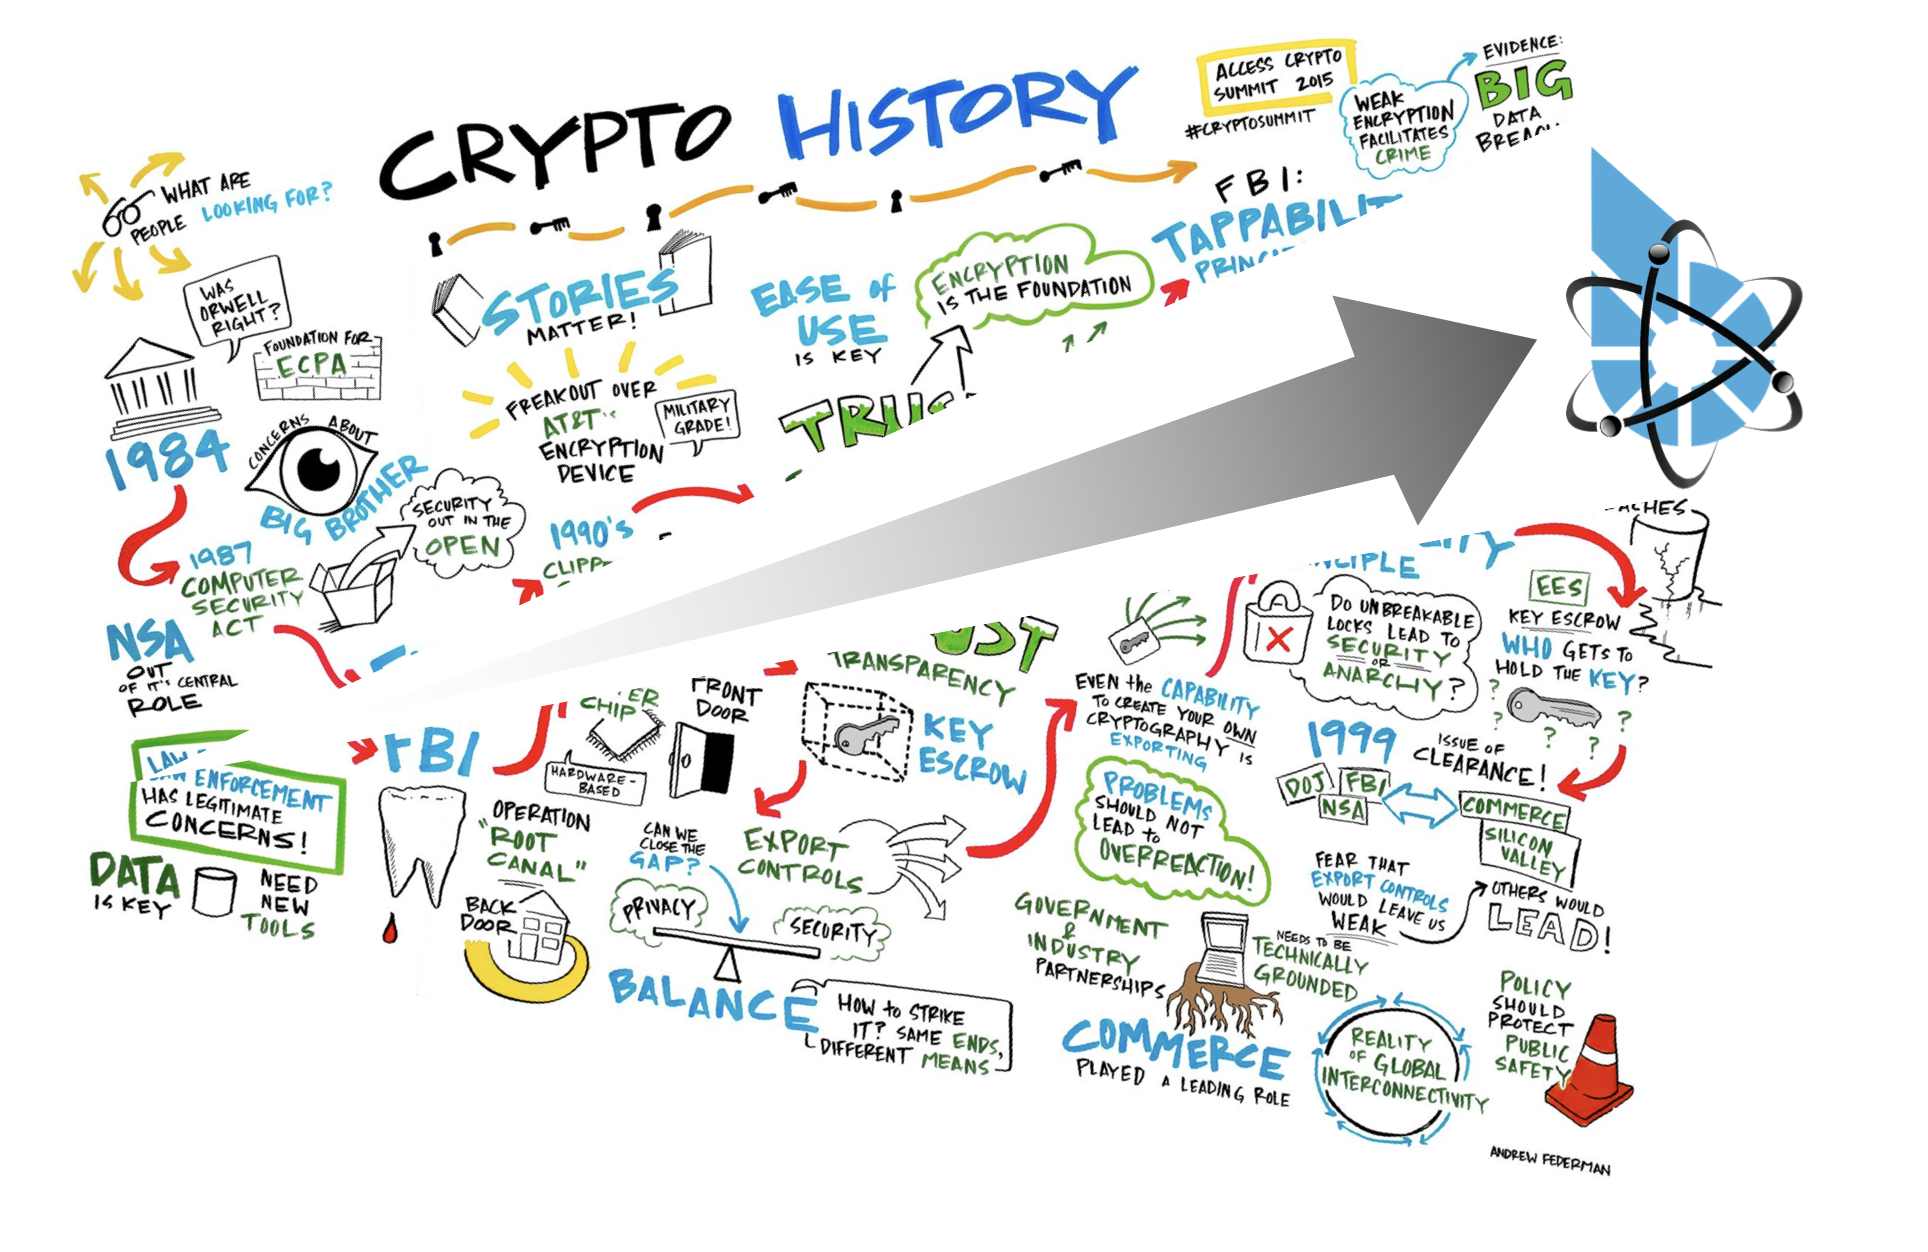 CRYPTO HISTORY
ACCESS CRYPTO
SUMMIT 2015
#CRYPTOSUMMIT
WEAK
ENCRYPTION
FACILITATES
CRIME
EVIDENCE:
BIG
DATA
WHAT ARE
PEOPLE LOOKING FOR?
WAS
ORWELL
RIGHT?
FOUNDATION FOR
ECPA
1984
CONCERNS ABOUT
BIG BROTHER
STORIES
MATTER!
FREAKOUT OVER
AT&T's
ENCRYPTION
DEVICE
MILITARY
GRADE!
EASE of
USE
IS KEY
ENCRYPTION
IS THE FOUNDATION
FBI:
SECURITY
OUT IN THE
OPEN
1990's
1987
COMPUTER
SECURITY
ACT
NSA
OUT
OF IT'S CENTRAL
ROLE
LAW
ENFORCEMENT
HAS LEGITIMATE
CONCERNS!
DATA
IS KEY
NEED
NEW
TOOLS
FBI
CHIP
HARDWARE-
BASED
FRONT
DOOR
OPERATION
"ROOT
CANAL"
BACK
DOOR
TRANSPARENCY
KEY
ESCROW
CAN WE
CLOSE THE
GAP?
PRIVACY
SECURITY
BALANCE
HOW to STRIKE
IT? SAME ENDS,
DIFFERENT MEANS
EXPORT
CONTROLS
EVEN the CAPABILITY
TO CREATE YOUR OWN
CRYPTOGRAPHY IS
EXPORTING
PROBLEMS
SHOULD NOT
LEAD to
OVERREACTION!
GOVERNMENT
&
INDUSTRY
PARTNERSHIPS
NEEDS TO BE
TECHNICALLY
GROUNDED
COMMERCE
PLAYED A LEADING ROLE
DO UNBREAKABLE
LOCKS LEAD TO
SECURITY
OR
ANARCHY?
EES
KEY ESCROW
WHO GETS TO
HOLD THE KEY?
? ? ? ? ?
1999
ISSUE OF
CLEARANCE!
DOJ
FBI
NSA
COMMERCE
SILICON
VALLEY
FEAR THAT
EXPORT CONTROLS
WOULD LEAVE US
WEAK
OTHERS WOULD
LEAD!
REALITY
OF GLOBAL
INTERCONNECTIVITY
POLICY
SHOULD
PROTECT
PUBLIC
SAFETY
ANDREW FEDERMAN